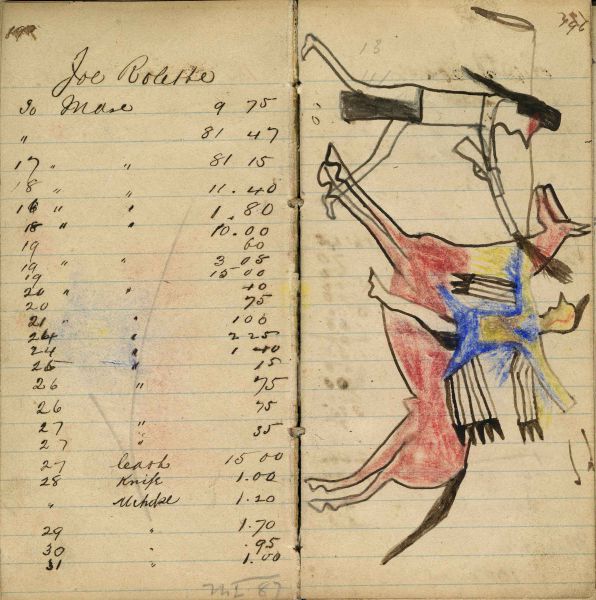 Joe Rolette
30 Mdse 9 75
" 81 47
17 " " 81 15
18 " " 11.40
16 " " 1.80
18 " " 10.00
19 60
19 " " 3 05
19 15 00
20 " " 40
20 75
21 " 100
24 " 2 25
24 " 1 40
25 " 15
26 " 75
26 75
27 " 35
27 "
27 Cash 15 00
28 Knife 1.00
" Mdse 1.20
29 " 1.70
30 " .95
31 " 1.00